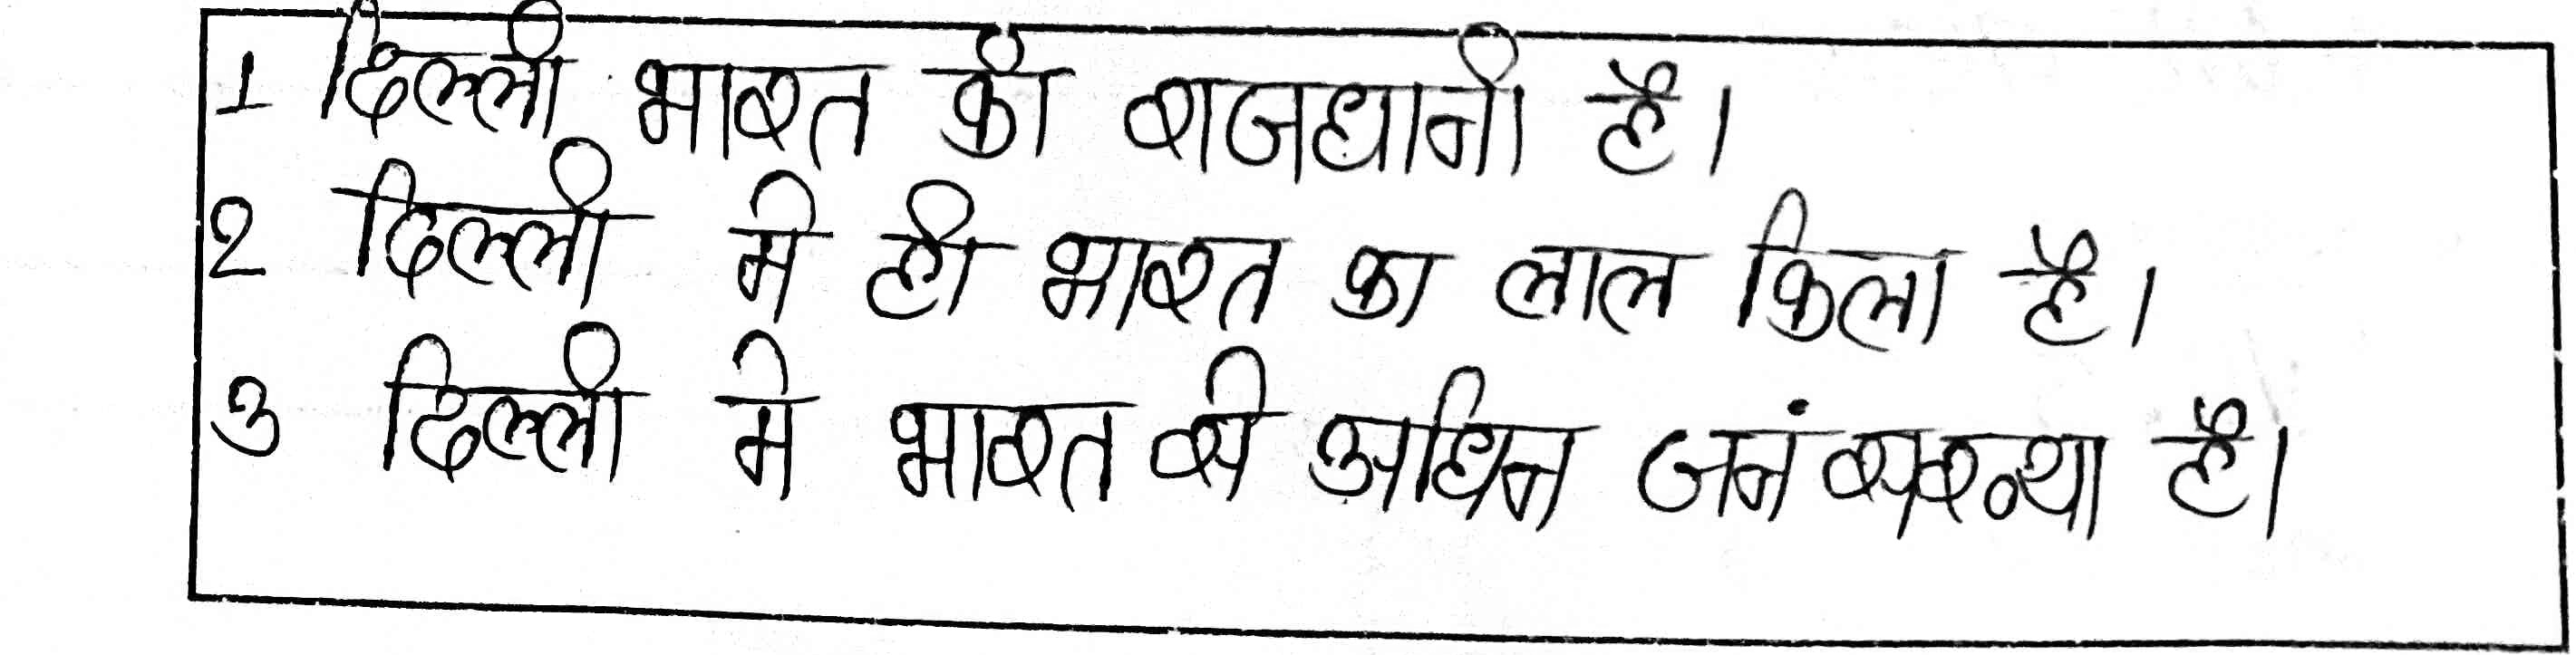 1 दिल्ली भारत की राजधानी है।
2 दिल्ली मे ही भारत का लाल किला है।
3 दिल्ली मे भारत से अधिन जनं सरख्या है।